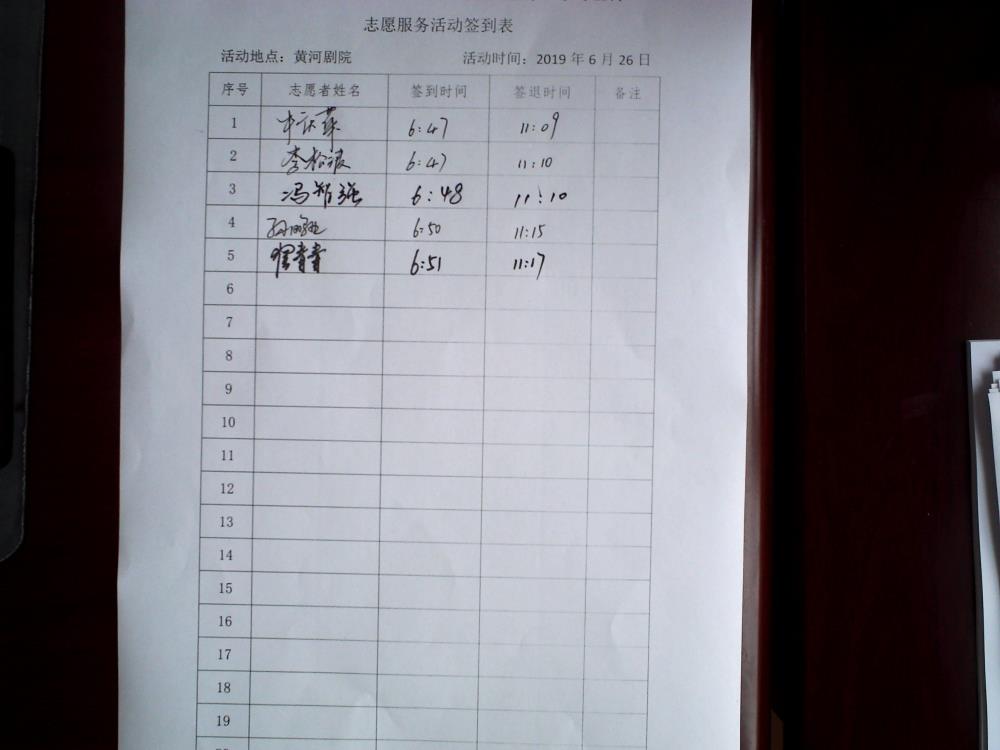 志愿服务活动签到表
活动地点：黄河剧院 活动时间：2019 年 6 月 26 日
序号 志愿者姓名 签到时间 签退时间 备注
1 6:47 11:09
2 李 6:47 11:10
3 冯智强 6:48 11:10
4 6:50 11:15
5 翟青青 6:51 11:17
6
7
8
9
10
11
12
13
14
15
16
17
18
19